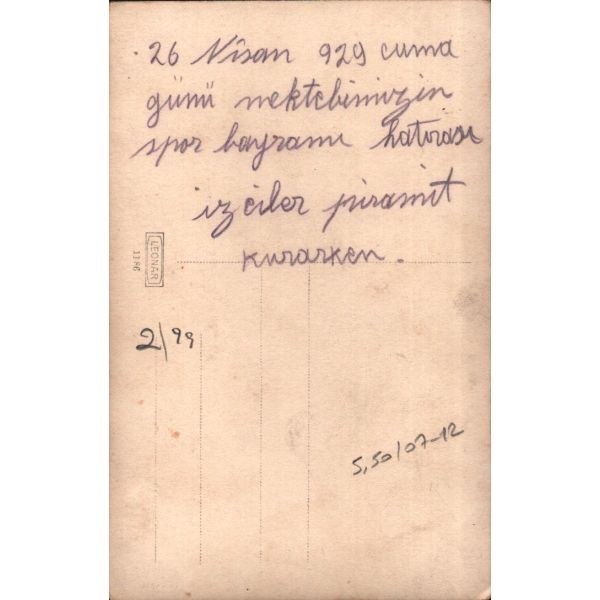 26 Nisan 929 cuma
günü mektebimizin
spor bayramı hatırası
izciler piramit
kurarken.
LEONAR
1186
2/99
5,50/07-12